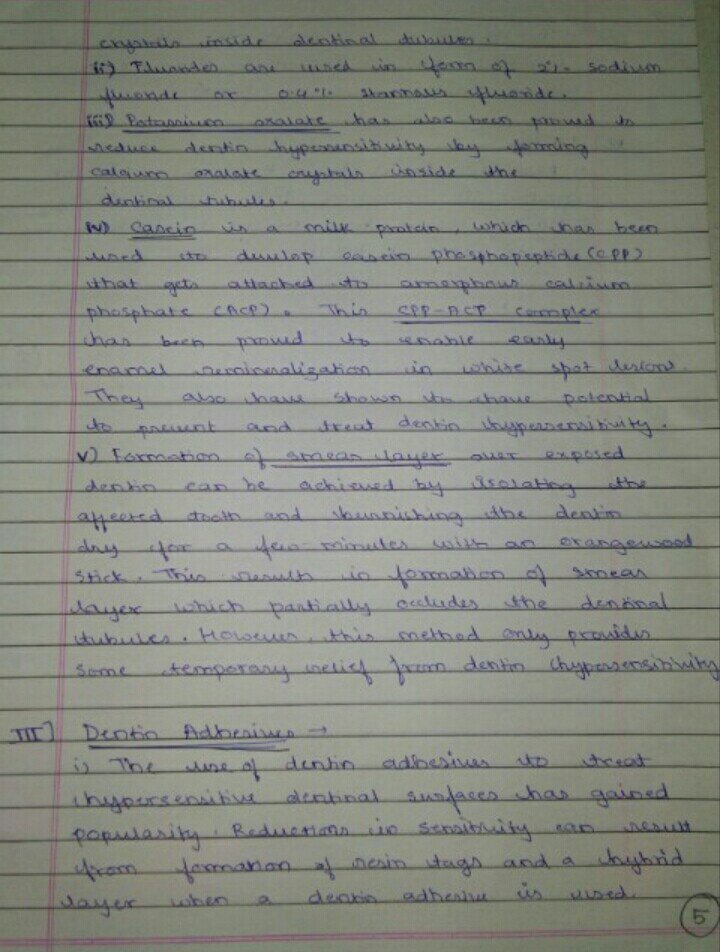 crystals inside dentinal tubules.
ii) Fluorides are used in form of 2% sodium
fluoride or 0.4% stannous fluoride.
iii) Potassium oxalate has also been proved to
reduce dentin hypersensitivity by forming
calcium oxalate crystals inside the
dentinal tubules.
iv) Casein is a milk protein, which has been
used to develop casein phosphopeptide (CPP)
that gets attached to amorphous calcium
phosphate (ACP). This CPP-ACP complex
has been proved to enable early
enamel remineralization in white spot lesions.
They also have shown to have potential
to prevent and treat dentin hypersensitivity.
v) Formation of smear layer over exposed
dentin can be achieved by isolating the
affected tooth and burnishing the dentin
dry for a few minutes with an orangewood
stick. This results in formation of smear
layer which partially occludes the dentinal
tubules. However, this method only provides
some temporary relief from dentin hypersensitivity
III] Dentin Adhesives →
i) The use of dentin adhesives to treat
hypersensitive dentinal surfaces has gained
popularity. Reductions in sensitivity can result
from formation of resin tags and a hybrid
layer when a dentin adhesive is used.
5